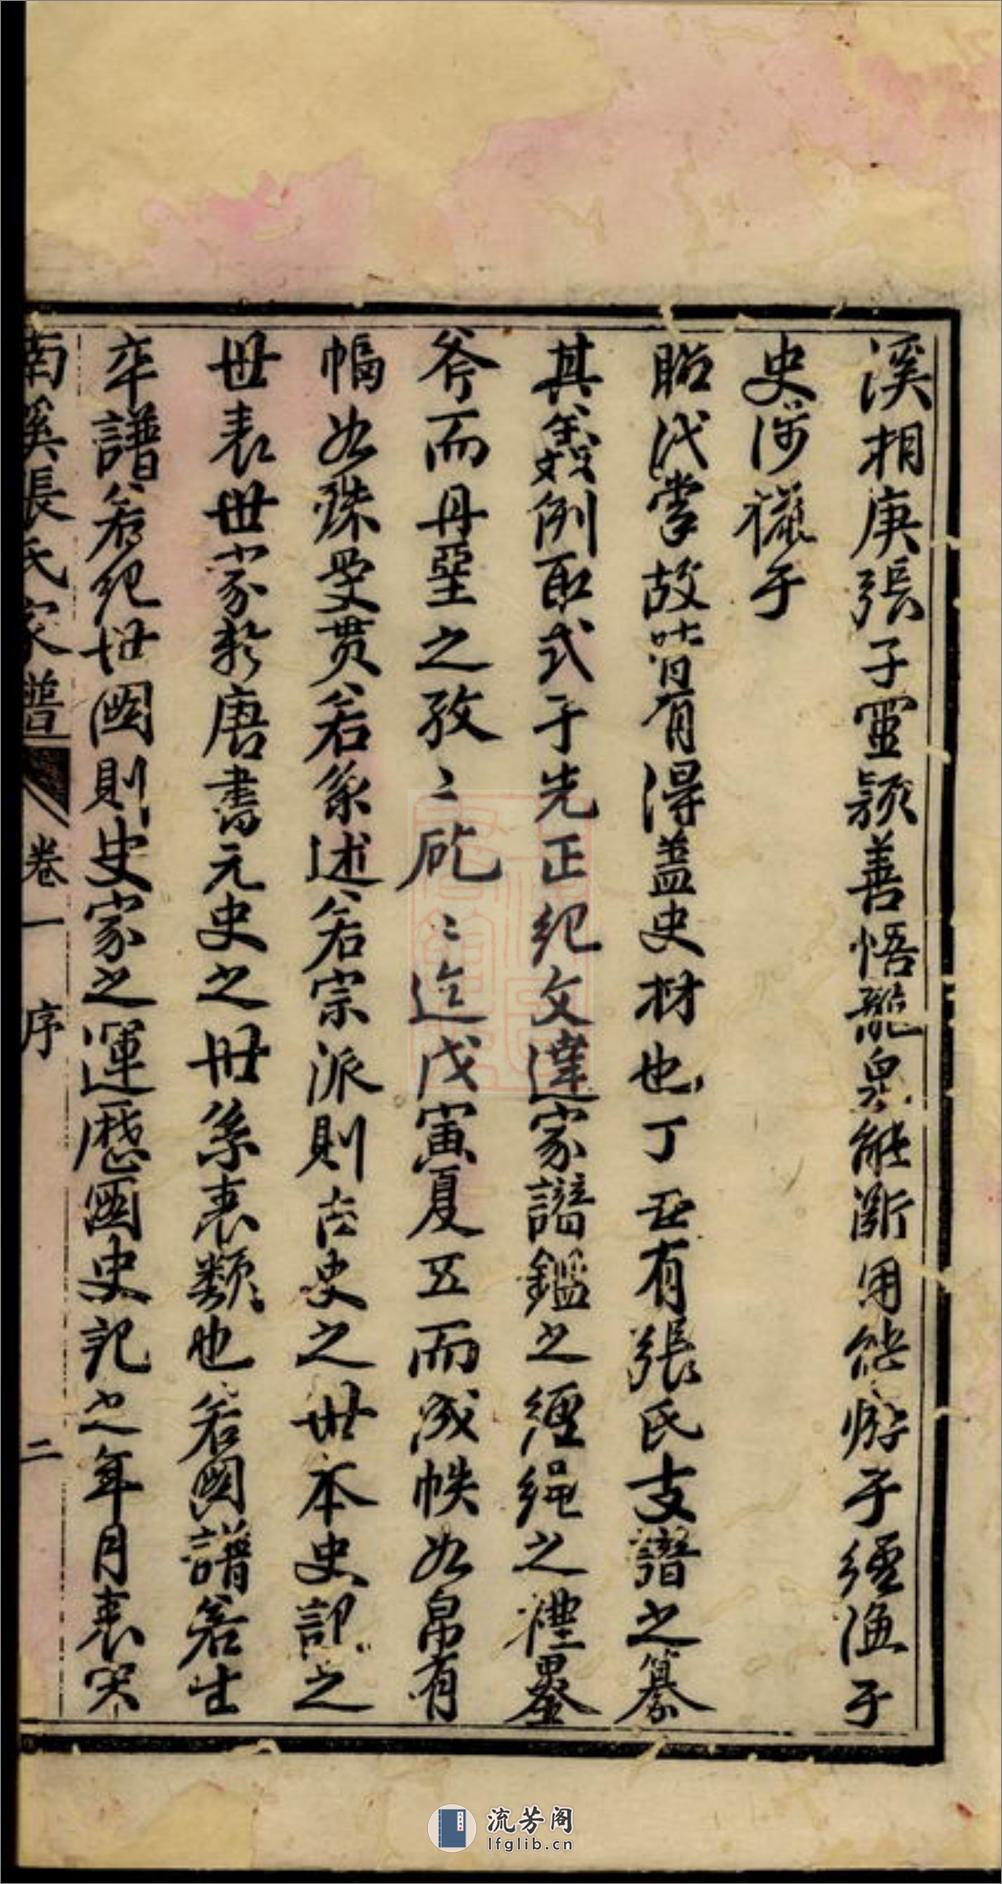 溪相庚張子靈穎善悟龍泉能斷用能游于經漁于
史涉獵于
昭代掌故皆有得蓋史材也丁丑有張氏支譜之纂
其義例取式于先正紀文達家譜鑑之繩繩之禮墨
斧而丹堊之孜〻矻〻迄戊寅夏五而成帙如帛有
幅如珠受贯若系述若宗派則古史之世本史記之
世表世家新唐書元史之世系表類也若國譜若生
卒譜若纪世國則史家之運歷圖史記之年月表宋
南溪張氏家譜
卷一 序
二
流芳阁
lfglib.cn